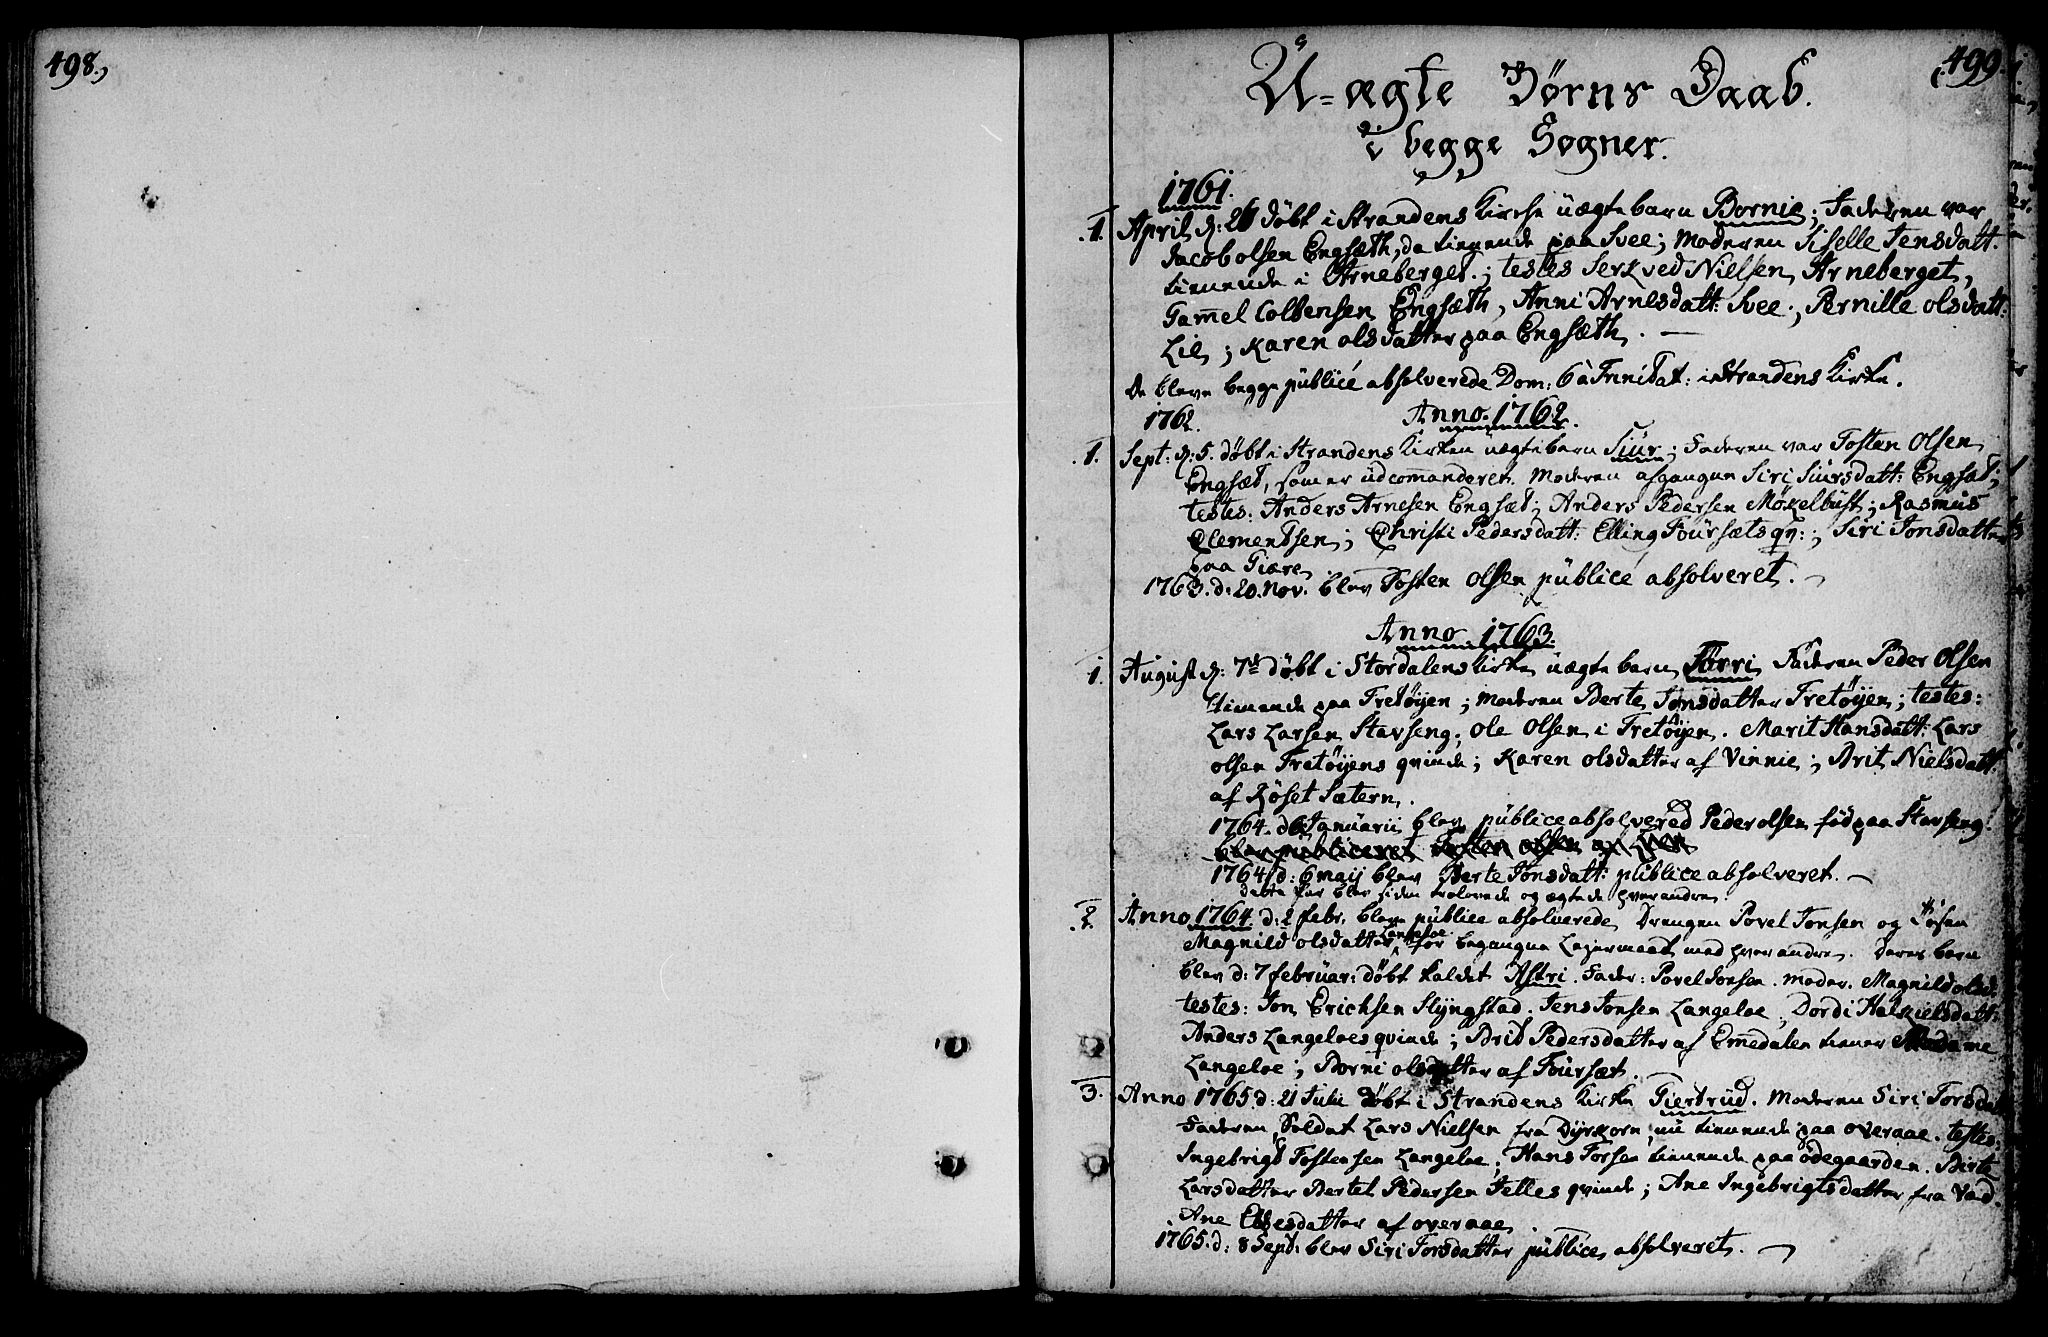 498.
499.
U-ægte Børns Daab.
i begge Sogner.
1761.
1. April d: 26 døbt i Strandens Kirche uægte barn Bornie; Faderen var
Jacob olsen Engsæth, da tienende paa Svee; Moderen Siselle Jensdatt.
tienende i Arneberget.; testes Serkved Nielsen, Arneberget,
Gam̄el Colbensen Engsæth, Anni Arnesdatt: Svee, Pernille olsdatt:
Lie; Karen olsdatter paa Engsæth. —
De bleve begge publicé absolverede Dom: 6 à Trinitat: i Strandens Kirke.
1762. Anno. 1762.
1. Sept: d: 5. døbt i Strandens Kirken uægte barn Siur; Faderen var Tosten Olsen
Engsæt, som er udcomanderet. Moderen afgangne Siri Siursdatt: Engsæt;
testes: Anders Arnesen Engsæt; Anders Pedersen Møkelbust; Rasmus
Clementsen; Christi Pedersdatt: Elling Foursæts qv:; Siri Jonsdatter
paa Giære.
1763. d: 20. Nov. blev Tosten Olsen publice absolveret. —
Anno. 1763.
1. August d: 7de døbt i Stordalens Kirke uægte barn Siri Faderen Peder Olsen
tienende paa Fretøyen; Moderen Berte Jonsdatter Fretøyen; testes:
Lars Larsen Stavseng; Ole Olsen i Fretøyen. Marit Hansdatt: Lars
olsen Fretøyens qvinde; Karen olsdatter af Vinnie; Brit Nielsdatt:
af Røset Sætern.
1764. d 6 Januarii blev publice absolvered Peder olsen fød paa Stavseng.
blev publiceret Tosten olsen
1764 d: 6 maij blev Berte Jonsdatt: publice absolveret. —
blev siden trolovede og ægtede hverandre.
2. Anno 1764 d: 2 febr. bleve publice absolverede Drengen Povel Jonsen og Pigen
Magnild olsdatter Langeloe for begangne Lejermaal med hverandre. Deres barn
blev d: 7 februar: døbt kaldet Astri. Fader: Povel Jonsen. moder. Magnild olsd:
testes: Jon Erichsen Slyngstad. Jens Jonsen Langeloe, Dordi Halkielsdatt:
Anders Langeloes qvinde; Brit Pedersdatter af Emedalen tiener Madame
Langeloe; Borni olsdatter af Foursæt.
3. Anno 1765 d: 21 Julii døbt i Strandens Kirke Giertrud. Moderen Siri Torsdat
Faderen, Soldat Lars Nielsen fra Dyrkorn, nu tienende paa overaae. testes:
Ingebrigt Tostensen Langeloe; Hans Torsen tienende paa ødegaarden. Birte
Larsdatter Bertel Pedersen Jelles qvinde; Ane Ingebrigtsdatter fra Vad.
Ane Ellesdatter af overaae
1765. d: 8 Sept: blev Siri Torsdatter publice absolveret. —